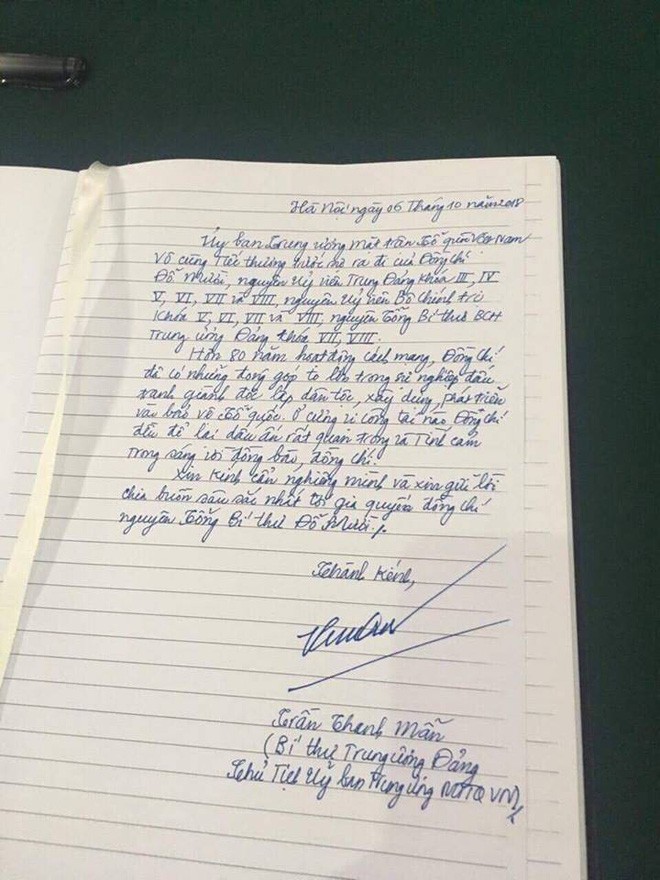 Hà Nội, ngày 06 Tháng 10 năm 2018
Ủy ban Trung ương mặt trận Tổ quốc Việt Nam
vô cùng Tiếc thương trước sự ra đi của Đồng chí
Đỗ Mười, nguyên Uỷ viên Trung Đảng Khóa III, IV
V, VI, VII và VIII, nguyên Uỷ viên Bộ chính trị
Khóa V, VI, VII và VIII, nguyên Tổng Bí thư BCH
Trung ương Đảng khóa VII, VIII.
Hơn 80 năm hoạt động cách mạng, Đồng chí
đã có những đóng góp to lớn trong sự nghiệp đấu
tranh giành độc lập dân tộc, xây dựng, phát triển
và bảo vệ Tổ quốc. Ở cương vị công tác nào Đồng chí
đều để lại dấu ấn rất quan trọng và Tình cảm
trong sáng với đồng bào, đồng chí.
Xin Kính cẩn nghiêng mình và xin gửi lời
chia buồn sâu sắc nhất tới gia quyến đồng chí
nguyên Tổng Bí thư Đỗ Mười./.
Thành Kính,
Trần Thanh Mẫn
(Bí thư Trung ương Đảng
Chủ Tịch Uỷ ban Trung ương MTTQ VN)